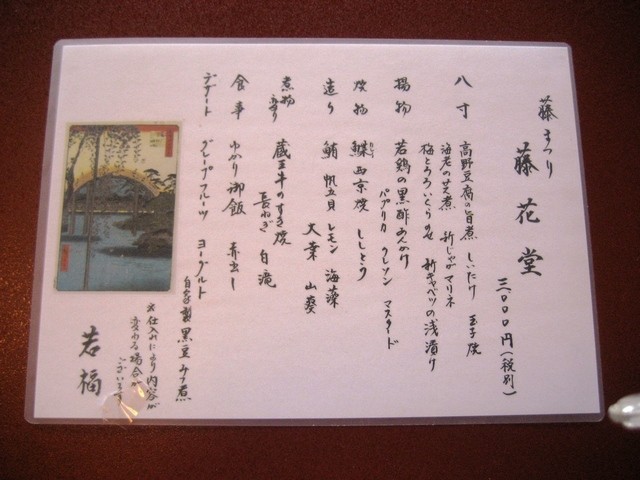 藤まつり
藤花堂
三〇〇〇円(税別)
八寸 高野豆腐の旨煮 しいたけ 玉子焼
海老の芝煮 新じゃがマリネ
梅とろろいくらのせ 新キャベツの浅漬け
揚物 若鶏の黒酢あんかけ
パプリカ クレソン マスタード
焼物 鰈西京焼 ししとう
造り 鮪 帆立貝 レモン 海藻
大葉 山葵
煮物 蔵王牛のすき焼
長ねぎ 白滝
食事 ゆかり御飯 赤出し
デザート グレープフルーツ ヨーグルト
自家製黒豆みつ煮
※仕入れにより内容が
変わる場合が
ございます
若福